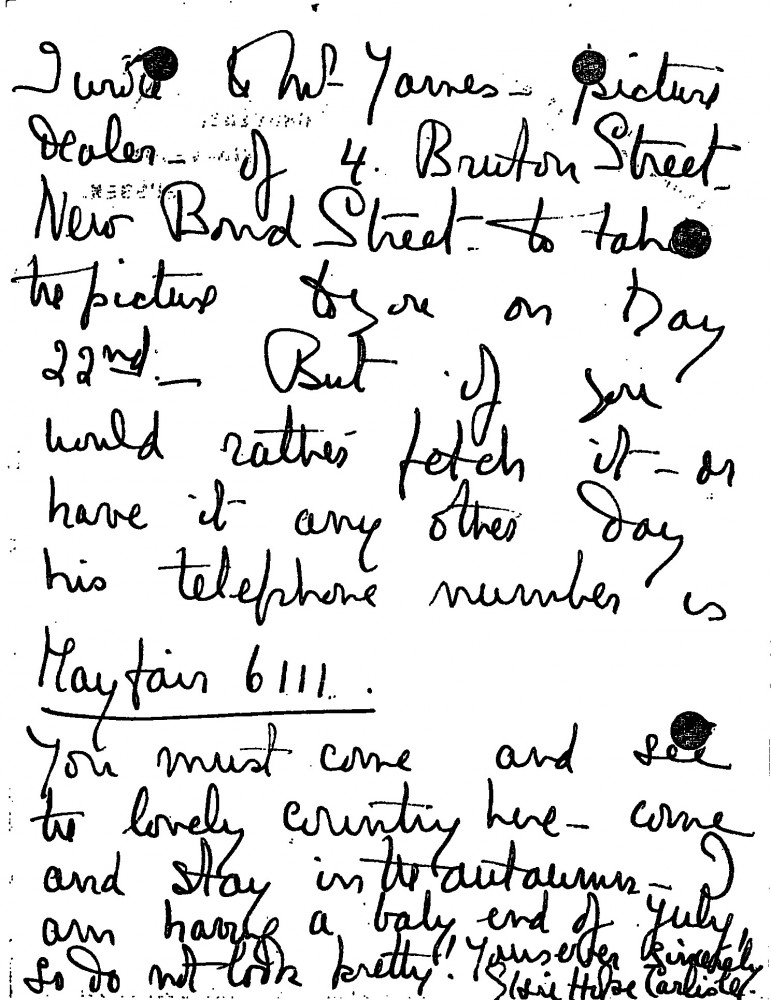 I wrote to Mr Yarnes - picture
Dealer - of 4. Bruton Street
New Bond Street - to take
the picture to you on Day
22nd. - But if you
would rather fetch it - or
have it any other Day
his telephone number is
Mayfair 6111.
You must come and see
the lovely country here - come
and stay in the autaumn - I
am having a baby end of July,
so do not look pretty! Yours ever sincerely
Hope Carlisle.